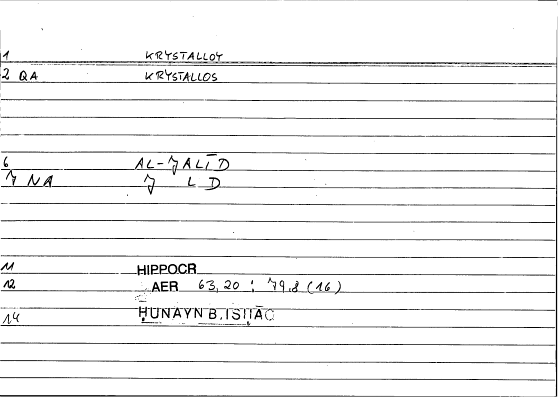 1 KRYSTALLOY
2 QA KRYSTALLOS
6 AL-ǦALĪD
7 NA Ǧ L D
11 HIPPOCR
12 AER 63,20 : 79,8 (16)
14 ḤUNAYN B. ISḤĀQ